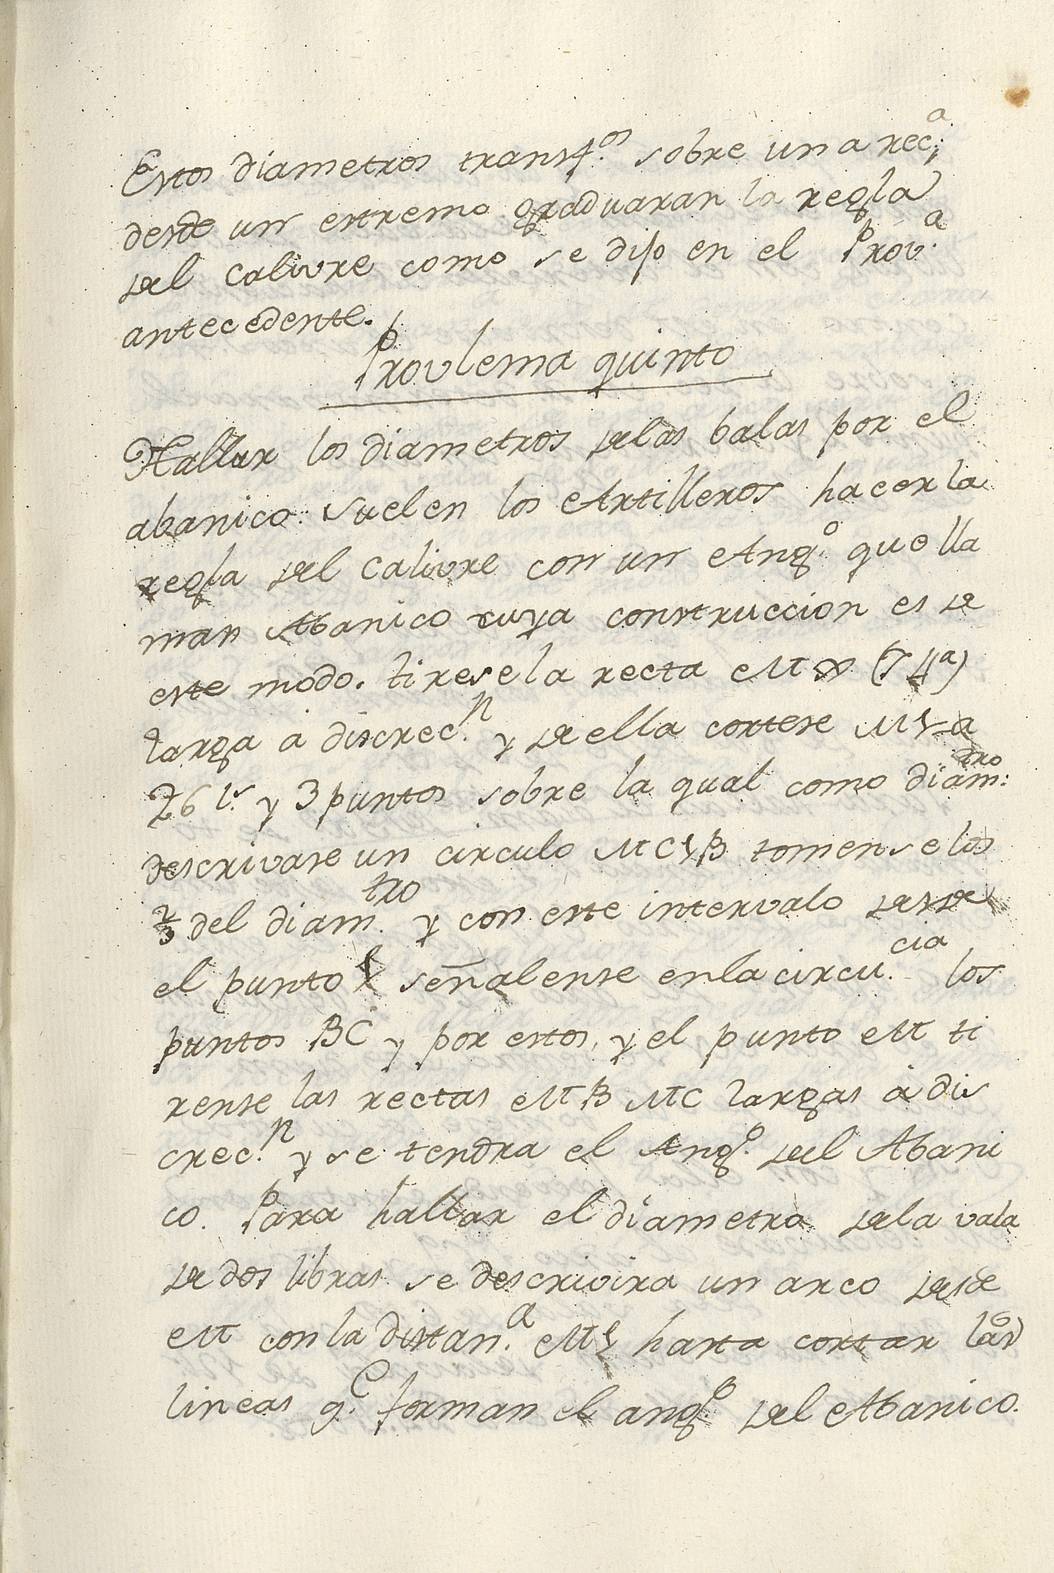 Estos diametros transf.os sobre una rec.a
desde un estremo graduaran la regla
del Calivre como se dijo en el Prov.a
antecedente.
Provlema quinto
Hallar los diametros delas balas por el
abanico. suelen los Artilleros hacer la
regla del Calivre con un Ang.o que lla
man Abanico cuya construccion es de
este modo. tirese la recta M (74a)
larga a discrec.n y de ella cortese MS a
26 l.s y 3 puntos sobre la qual como diam.tro
descrivase un circulo MCSB tomense los
2/3 del diam.tro y con este intervalo desde
el punto S señalense enla circu.cia los
puntos BC y por estos, y el punto M ti
rense las rectas MB MC largas à dis
crec.n y se tendra el Ang.o del Abani
co. Para hallar el diametro dela vala
de dos libras se descrivira un arco desde
M con la distan.a MS hasta cortar las
lineas q.e forman el ang.o del Abanico.